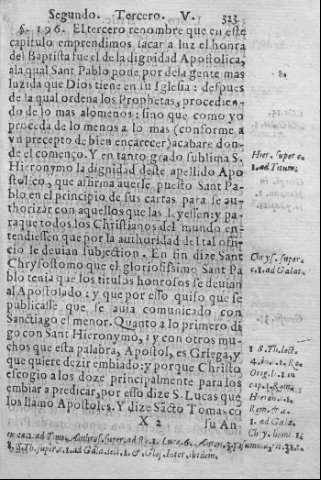 Segundo. Tercero. V. 323
§. 196. El tercero renombre que en este
capitulo emprendimos sacar a luz el honra
del Baptista fue el de la dignidad Apostolica,
a la qual Sant Pablo pone por dela gente mas
luzida que Dios tiene en su Iglesia: despues
de la qual ordena los Prophetas, procedien-
do de lo mas alomenos: sino que como yo
proceda de lo menos a lo mas (conforme a
vn precepto de bien encarecer) acabare don-
de el començo. Y en tanto grado sublima S.
Hieronymo la dignidad deste apellido Apo
stolico, que affirma auerse puesto Sant Pa-
blo en el principio de sus cartas para se au-
thorizar con aquellos que las leyessen: y pa-
raque todos los Christianos del mundo en-
tendiessen que por la authoridad de tal offi-
cio le deuian subjection. En fin dize Sant
Chrysostomo que el gloriosissimo Sant Pa
blo tenia que los titulos honrosos se deuian
al Apostolado: y que por esso quiso que se
publicasse que se auia comunicado con
Sanctiago el menor. Quanto a lo primero di
go con Sant Hieronymo, y con otros mu-
chos que esta palabra, Apostol, es Griega, y
que quiere dezir embiado; y porque Christo
escogio a los doze principalmente para los
embiar a predicar, por esso dize S. Lucas que
los llamo Apostoles. Y dize Sācto Tomas cō
X 2 su An
Hier. super c.
1. ad Titum.
Chrys. super
c. 1. ad Galat.
1 S. Th. lect.
Orig. li. 1. in
cap. 1. Roma.
Hieron. 1.
Rom. &
1. ad Gala.
Chry. homi.